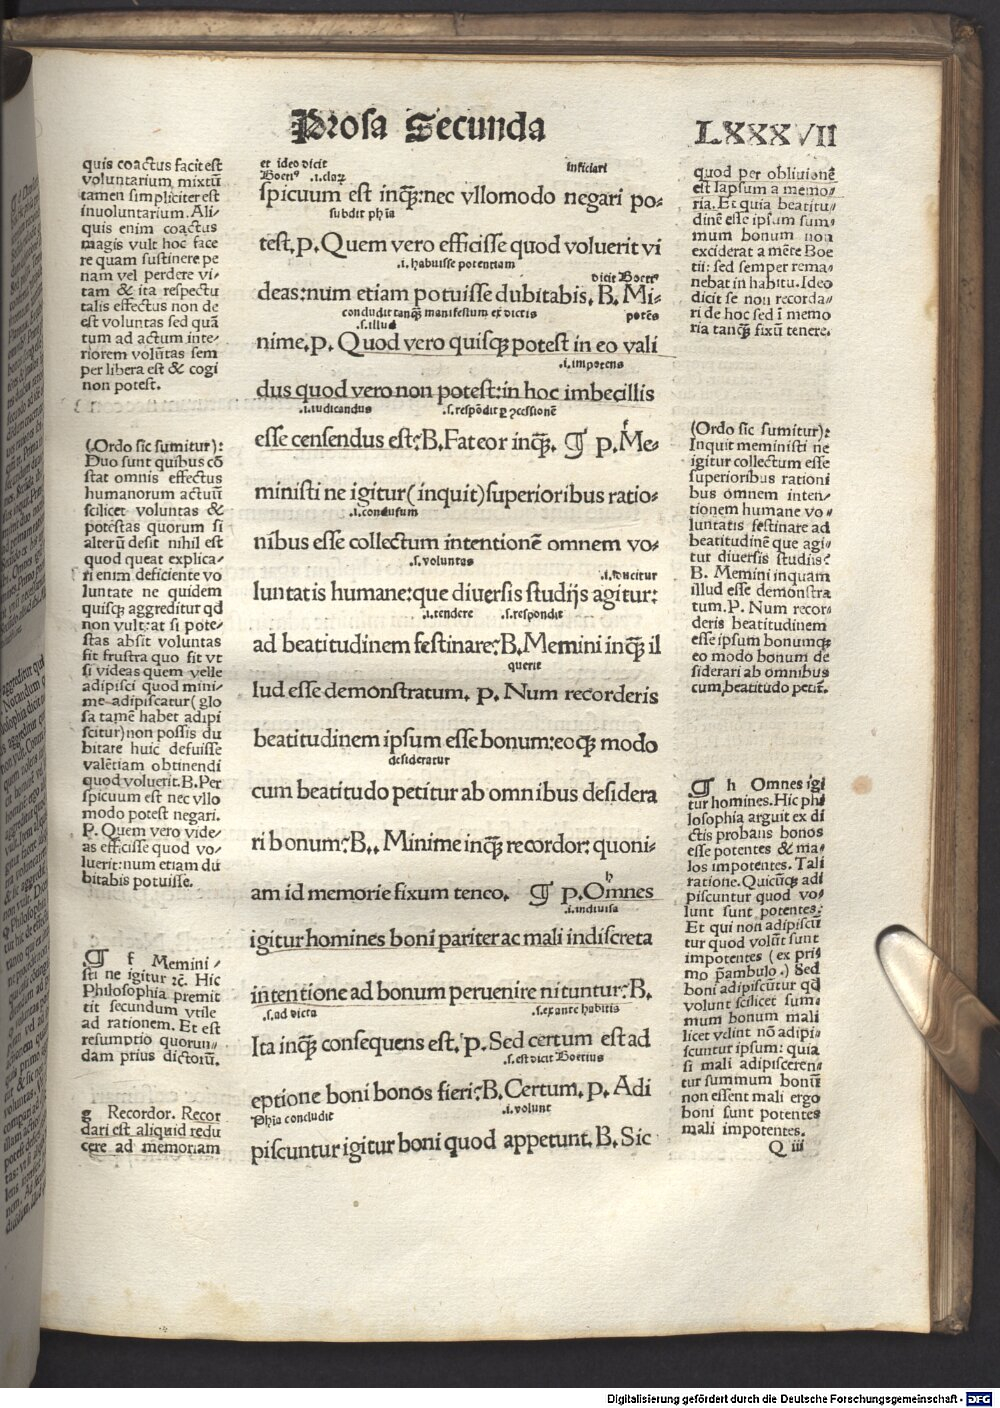 Prosa Secunda
LXXXVII
quis coactus facit est
voluntarium mixtū
tamen simpliciter est
inuoluntarium. Ali⸗
quis enim coactus
magis vult hoc face
re quam sustinere pe
nam vel perdere vi⸗
tam & ita respectu
talis effectus non de
est voluntas sed quā
tum ad actum inte⸗
riorem volūtas sem
per libera est & cogi
non potest.
(Ordo sic sumitur):
Duo sunt quibus cō
stat omnis effectus
humanorum actuū
scilicet voluntas &
potestas quorum si
alterū desit nihil est
quod queat explica⸗
ri enim deficiente vo
luntate ne quidem
quisqꝫ aggreditur qd
non vult: at si pote⸗
stas absit voluntas
sit frustra quo fit vt
si videas quem velle
adipisci quod mini⸗
me adipiscatur (glo
sa tamē habet adipi
scitur) non possis du
bitare huic defuisse
valētiam obtinendi
quod voluerit. B. Per
spicuum est nec vllo
modo potest negari.
P. Quem vero vide⸗
as efficisse quod vo⸗
luerit: num etiam du
bitabis potuisse.
¶ f Memini⸗
sti ne igitur ⁊c̄. Hic
Philosophia premit
tit secundum vtile
ad rationem. Et est
resumptio quorun⸗
dam prius dictorū.
g Recordor. Recor
dari est aliquid redu
cere ad memoriam
et ideo dicit
Boeti⁹ .i. claꝝ
inficiari
spicuum est inqꝫ̄: nec vllomodo negari po⸗
subdit phīa
test, p. Quem vero efficisse quod voluerit vi
.i. habuisse potentiam
dicit Boeti⁹
deas: num etiam potuisse dubitabis. B. Mi⸗
concludit tanqꝫ̄ manifestum ex dictis
potēs
.s. illud
nime. p. Quod vero quisqꝫ potest in eo vali
.i. impotens
dus quod vero non potest: in hoc imbecillis
.i. iudicandus
.s. respōdit ꝑ ꝯcessionē
esse censendus est: B. Fateor inqꝫ̄. ¶ p. Me⸗
f
ministi ne igitur (inquit) superioribus ratio⸗
.i. conclusum
nibus esse collectum intentionē omnem vo⸗
.s. voluntas
.i. ducitur
luntatis humane: que diuersis studijs agitur:
.i. tendere
.s. respondit
ad beatitudinem festinare: B. Memini inqꝫ̄ il
querit
lud esse demonstratum. p. Num recorderis
beatitudinem ipsum esse bonum: eoqꝫ̄ modo
desideratur
cum beatitudo petitur ab omnibus desidera
ri bonum: B. Minime inqꝫ̄ recordor: quoni⸗
am id memorie fixum teneo. ¶ p. Omnes
h
.i. indiuisa
igitur homines boni pariter ac mali indiscreta
intentione ad bonum peruenire nituntur: B.
.s. ad dicta
.s. ex ante habitis
Ita inqꝫ̄ consequens est. p. Sed certum est ad
.s. est dicit Boetius
eptione boni bonos fieri: B. Certum. p. Adi
Phīa concludit
.i. volunt
piscuntur igitur boni quod appetunt. B. Sic
quod per obliuionē
est lapsum a memo⸗
ria. Et quia beatitu⸗
dinē esse ipsum sum⸗
mum bonum non
exciderat a mēte Boe
tii: sed semper rema⸗
nebat in habitu. Ideo
dicit se non recorda⸗
ri de hoc sed ī memo
ria tanqꝫ̄ fixū tenere.
(Ordo sic sumitur):
Inquit meministi ne
igitur collectum esse
superioribus rationi
bus omnem inten⸗
tionem humane vo⸗
luntatis festinare ad
beatitudinē que agi⸗
tur diuersis studiis?
B. Memini inquam
illud esse demonstra
tum. P. Num recor⸗
deris beatitudinem
esse ipsum bonumqꝫ
eo modo bonum de
siderari ab omnibus
cum beatitudo petit᷑.
¶ h Omnes igi
tur homines. Hic phi
losophia arguit ex di
ctis probans bonos
esse potentes & ma⸗
los impotentes. Tali
ratione. Quicūqꝫ adi
piscuntur quod vo⸗
lunt sunt potentes:
Et qui non adipiscū
tur quod volūt sunt
impotentes (ex pri⸗
mo p̄ambulo.) Sed
boni adipiscūtur qd
volunt scilicet sum⸗
mum bonum mali
licet velint nō adipi⸗
scuntur ipsum: quia
si mali adipisceren⸗
tur summum bonū
non essent mali ergo
boni sunt potentes
mali impotentes.
Q iii
Digitalisierung gefördert durch die Deutsche Forschungsgemeinschaft - DFG